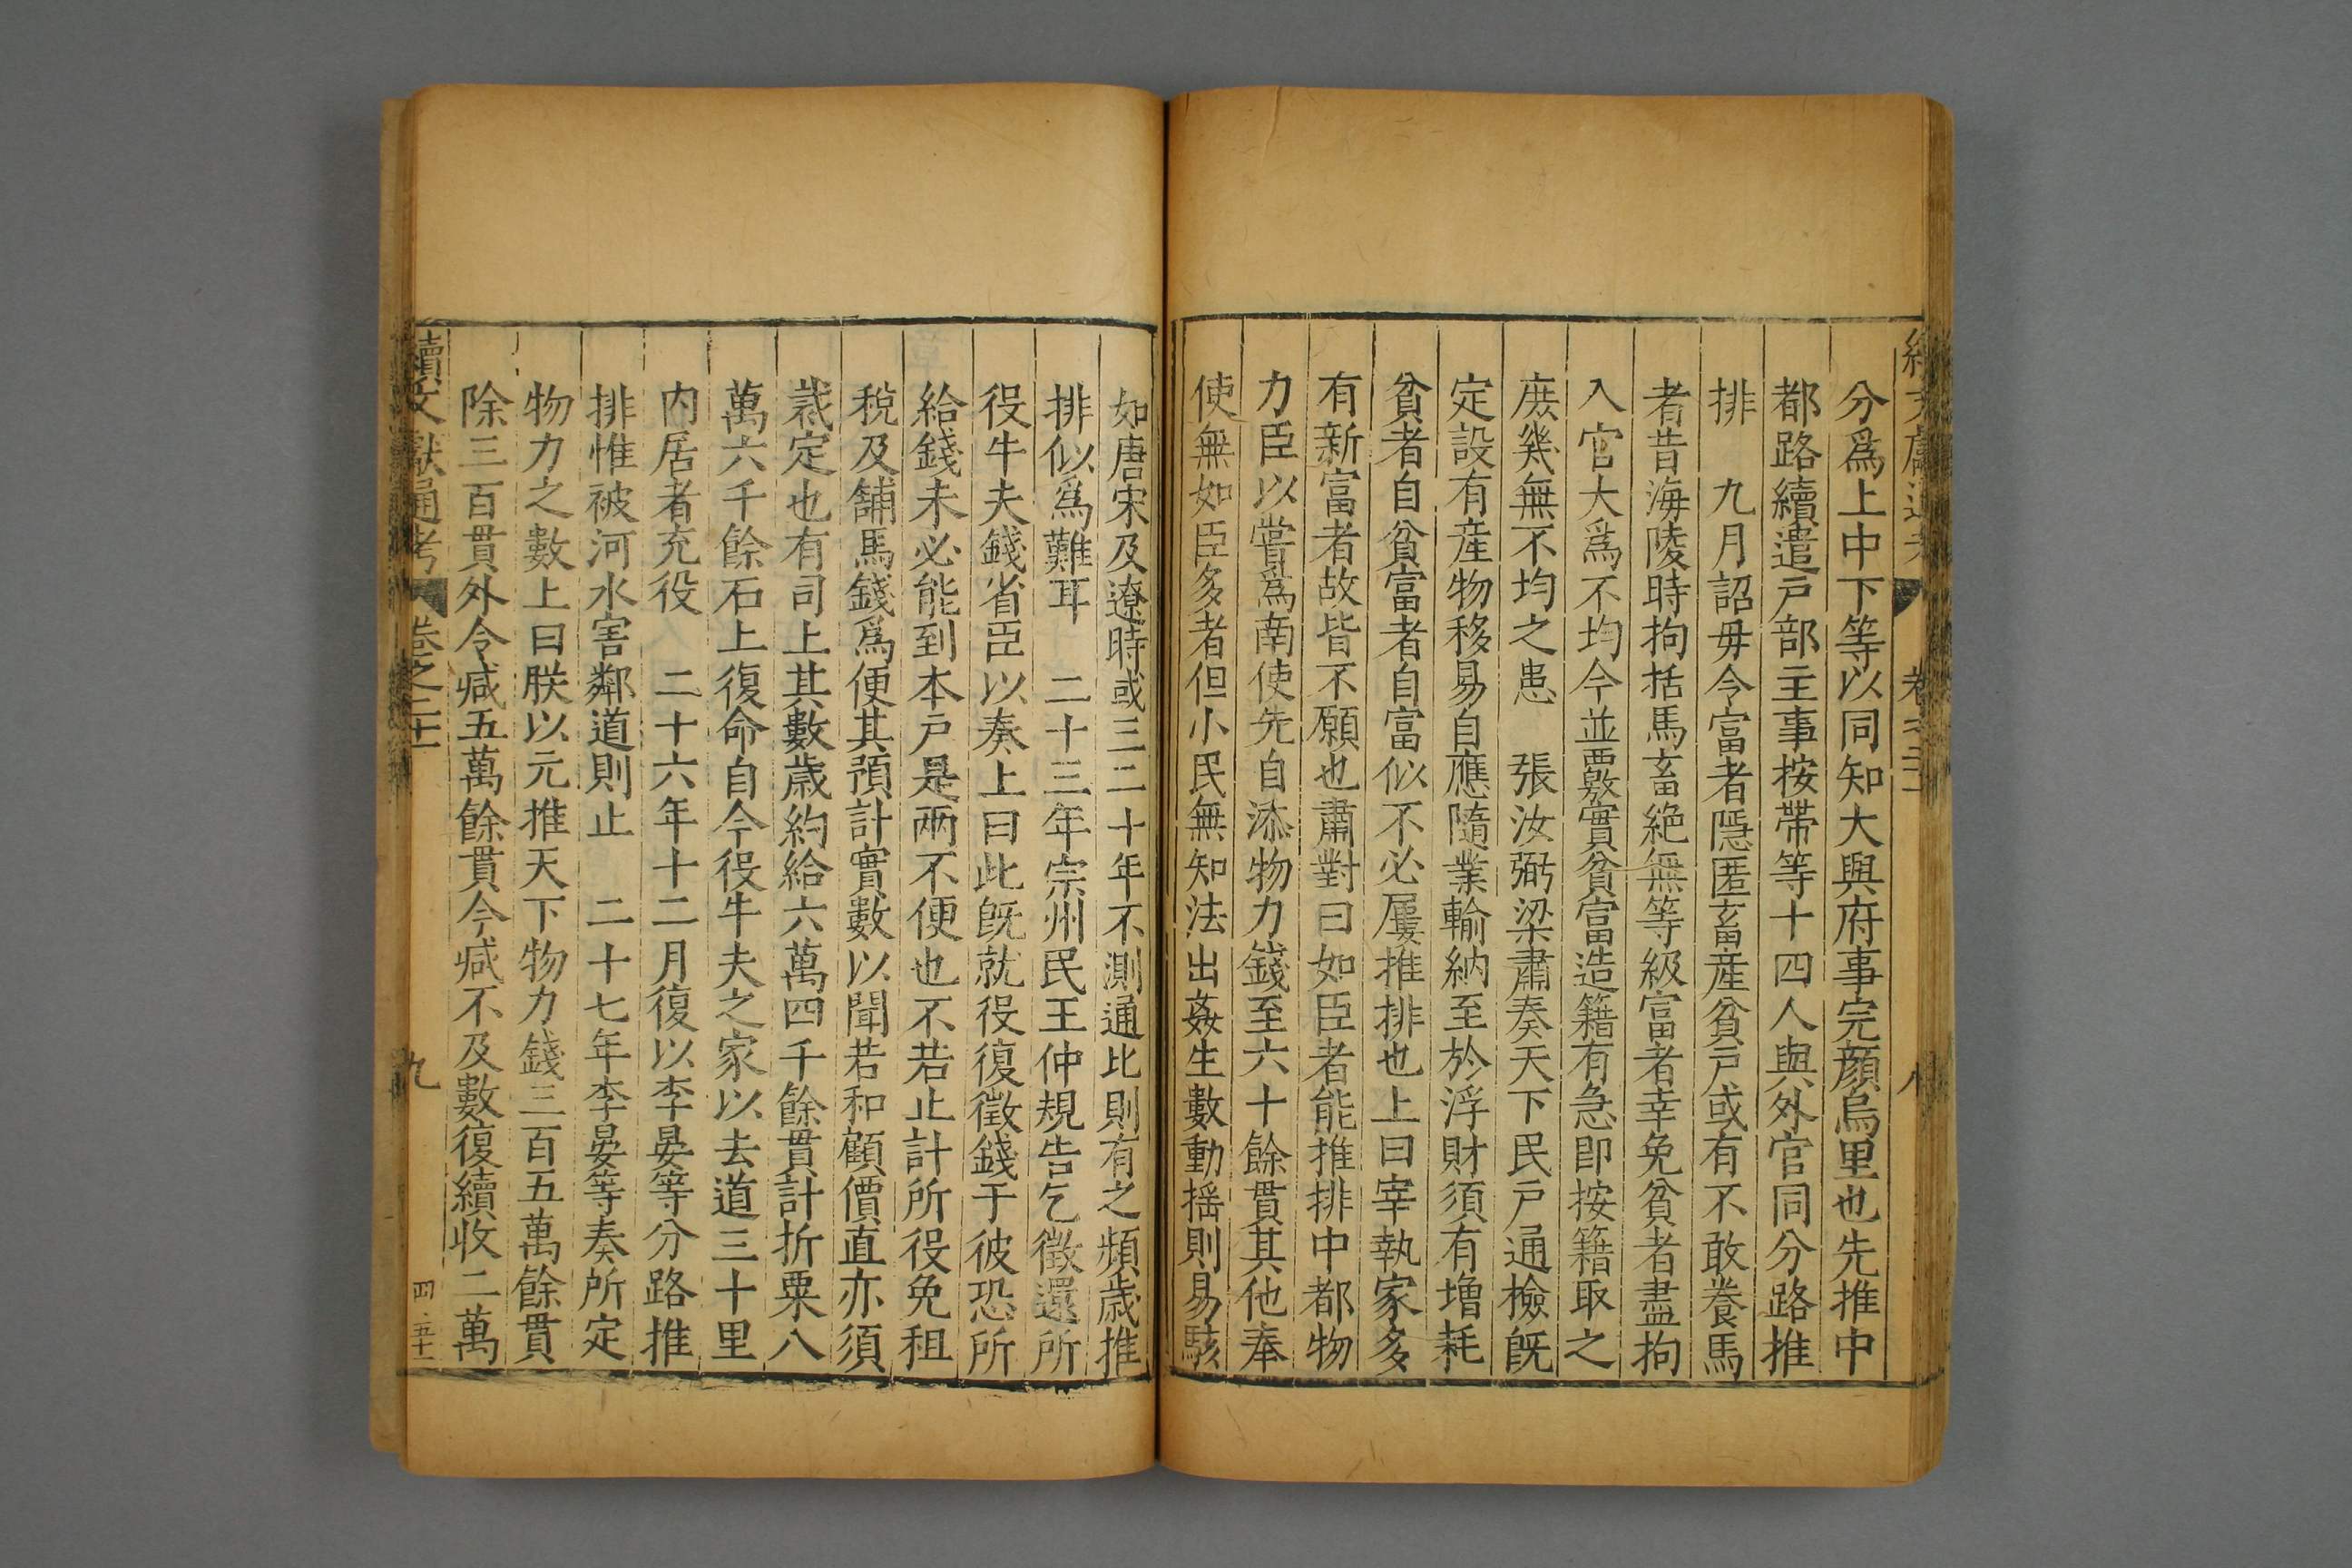 分爲上中下等以同知大興府事完顔烏里也先推中
都路續遣戸部主事按帶等十四人與外官同分路推
排　九月詔毋令富者隱匿畜産貧戸或有不敢養馬
者昔海陵時拘括馬畜絶無等級富者幸免貧者盡拘
入官大爲不均今並覈實貧富造籍有急即按籍取之
庻幾無不均之患　張汝弼梁肅奏天下民戸通檢旣
定設有産物移易自應隨業輸納至於浮財須有増耗
貧者自貧富者自富似不必屢推排也上曰宰執家多
有新富者故皆不願也肅對曰如臣者能推排中都物
力臣以嘗爲南使先自添物力錢至六十餘貫其他奉
使無如臣多者但小民無知法出姦生數動揺則易駭
如唐宋及遼時或三二十年不測通比則有之頻歳推
排似爲難耳　二十三年宗州民王仲規告乞徵還所
役牛夫錢省臣以奏上曰此旣就役復徵錢于彼恐所
給錢未必能到本戸是兩不便也不若止計所役免租
税及舖馬錢爲便其預計實數以聞若和顧價直亦須
裁定也有司上其數歳約給六萬四千餘貫計折粟八
萬六千餘石上復命自今役牛夫之家以去道三十里
内居者充役　二十六年十二月復以李晏等分路推
排惟被河水害鄰道則止　二十七年李晏等奏所定
物力之數上曰朕以元推天下物力錢三百五萬餘貫
除三百貫外令减五萬餘貫今减不及數復續收二萬
續文獻通考　卷之二十　九　四·五十一